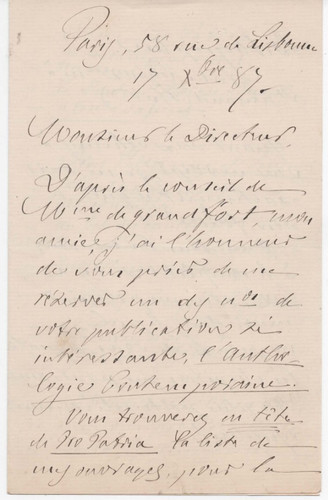 Paris, 58 rue de Lisbonne
17 Xbre 87.
Monsieur le Directeur,
D'après le conseil de
Mme de grandfort, mon
amie, j'ai l'honneur
de vous prier de me
réserver un des nos de
votre publication si
intéressante, l'Antho-
logie Contemporaine.
Vous trouverez en tête
de Pro Patria la liste de
mes ouvrages, pour la